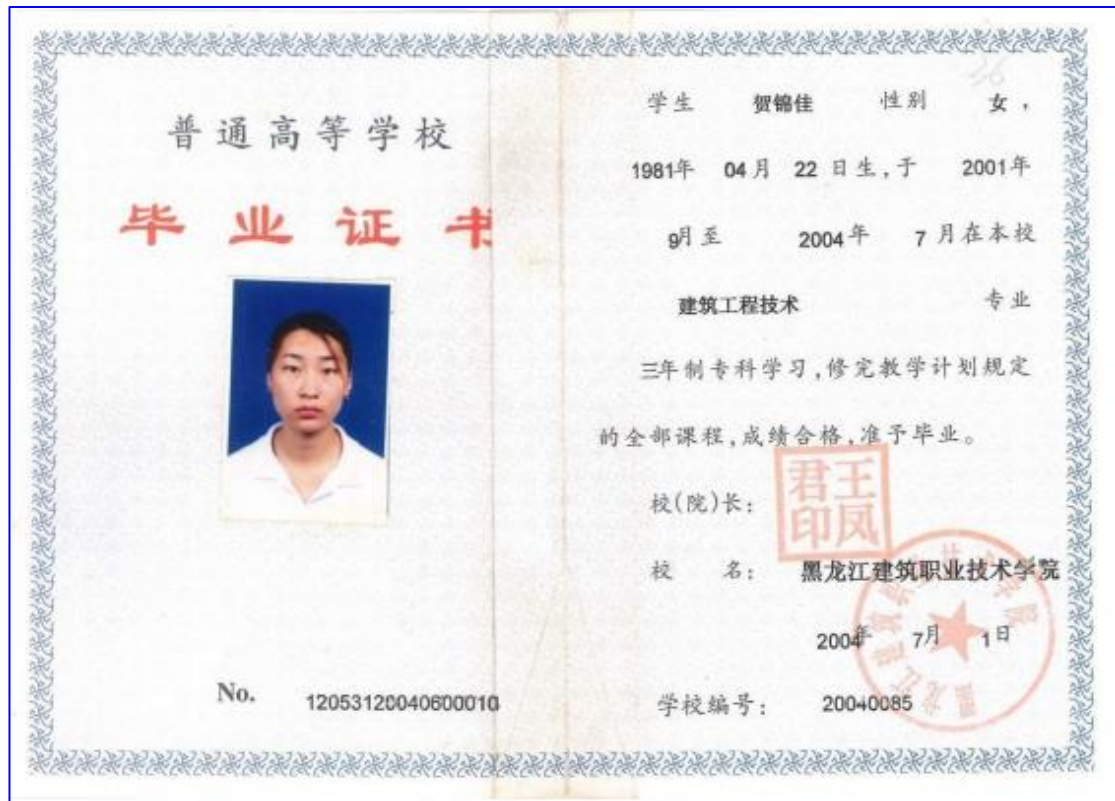 普通高等学校
毕业证书
No. 120531200406000010
学生 贺锦佳 性别 女，
1981年 04月 22日生，于 2001年
9月至 2004年 7月在本校
建筑工程技术 专业
三年制专科学习，修完教学计划规定
的全部课程，成绩合格，准予毕业。
校(院)长：
王凤君印
校 名： 黑龙江建筑职业技术学院
2004年 7月 1日
学校编号： 20040085
黑龙江建筑职业技术学院